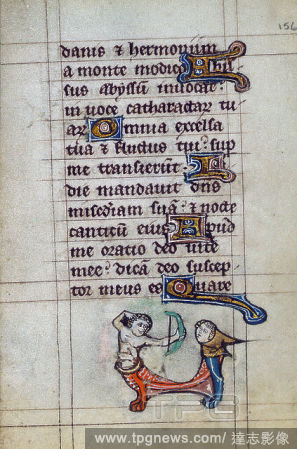 156
danis & hermonum
a monte modico Abis
sus abyssū inuocat:
in uoce catharactar tu
ar Omnia excelsa
tua & fluctus tui: sup
me transierūt In
die mandauit dns
miscdiam suā: & nocte
canticū eius Apud
me oratio deo uite
mee: dicā deo suscep
tor meus es Quare
TPG
www.tpgnews.com/ 達志影像